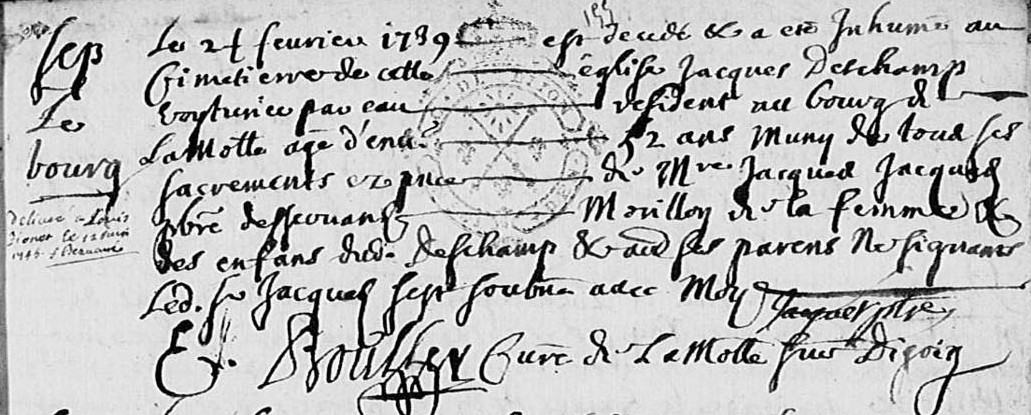 Sep
Le
bourg
Delivré a Louis
le 12 Juin
1745.
Le 24 fevrier 1739 est decedé & a eté Inhumé au
Cimetierre de cette église Jacques Deschamp
voyturier par eau resident au bourg de
LaMotte agé d'env. 52 ans Muny de tous ses
sacrements en pnce de Mre Jacques Jacques
pbre desservant Morillon de la femme &
des enfans dud. Deschamp & aud ses parens Ne signants
Led. sr Jacques sest soubné avec Moy Jacques ptre
Et. Bouffey Curé de LaMotte sur Digoin